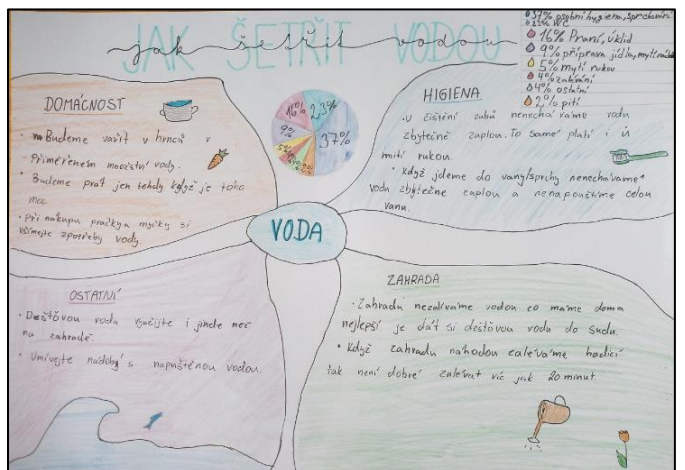 JAK ŠETŘIT VODOU
jak šetřit vodou
37% osobní hygiena, sprchování
23% WC
16% Praní, úklid
9% příprava jídla, mytí nádobí
5% mytí rukou
4% zalévání
4% ostatní
2% pití
DOMÁCNOST
• Budeme vařit v hrnců v
Přiměřeném množství vody.
• Budeme prát jen tehdy když je toho
moc
• při nákupu pračky a myčky si
všímejte zpotřeby vody
16%
23%
9%
37%
5%
HIGIENA
• U čištění zubů nenecháváme vodu
zbytečně zaplou. To samé platí i u
mití rukou.
• Když jdeme do vany/sprchy nenecháváme
vodu zbytečně zaplou a nenapouštíme celou
vanu.
VODA
OSTATNÍ
• Dešťovou vodu využijte i jinde než
na zahradě.
• Umívejte nádobý s napuštěnou vodou.
ZAHRADA
• Zahradu nezalíváme vodou co máme doma
nejlepší je dát si dešťovou vodu do sudu.
• Když zahradu náhodou zaléváme hadicí
tak není dobré zalévat víc jak 20 minut.